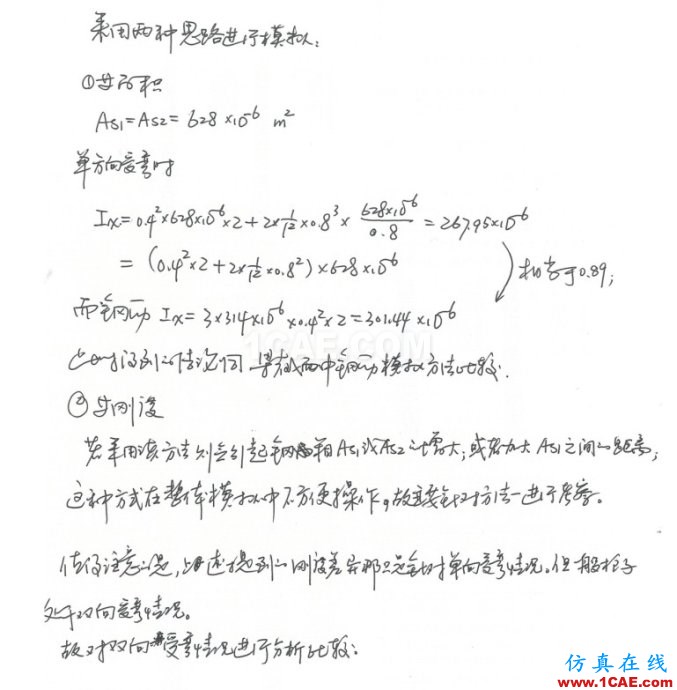 采用两种思路进行模拟：
①等面积
As1=As2= 628×10⁻⁶ m²
单方向受弯时
Ix=0.4²×628×10⁻⁶×2+2×1/12×0.8³×628×10⁻⁶/0.8=267.95×10⁻⁶
=(0.4²×2+2×1/12×0.8²)×628×10⁻⁶
相当于0.89；
而钢筋 Ix=3×314×10⁻⁶×0.4²×2=301.44×10⁻⁶
1CAE.COM
此时得到的结论同 截面中钢筋模拟方法比较.
②等刚度
若采用该方法则会引起钢筋As1或As2之增大；或者加大As1之间的距离；
这种方式在整体模拟中不方便操作，故直接针对方法一进行考察。
值得注意的是，上述提到的刚度差异都只是针对单向受弯情况。但一般柱子
处于双向受弯情况。
故对双向受弯情况进行分析比较：
仿真在线
www.1CAE.com